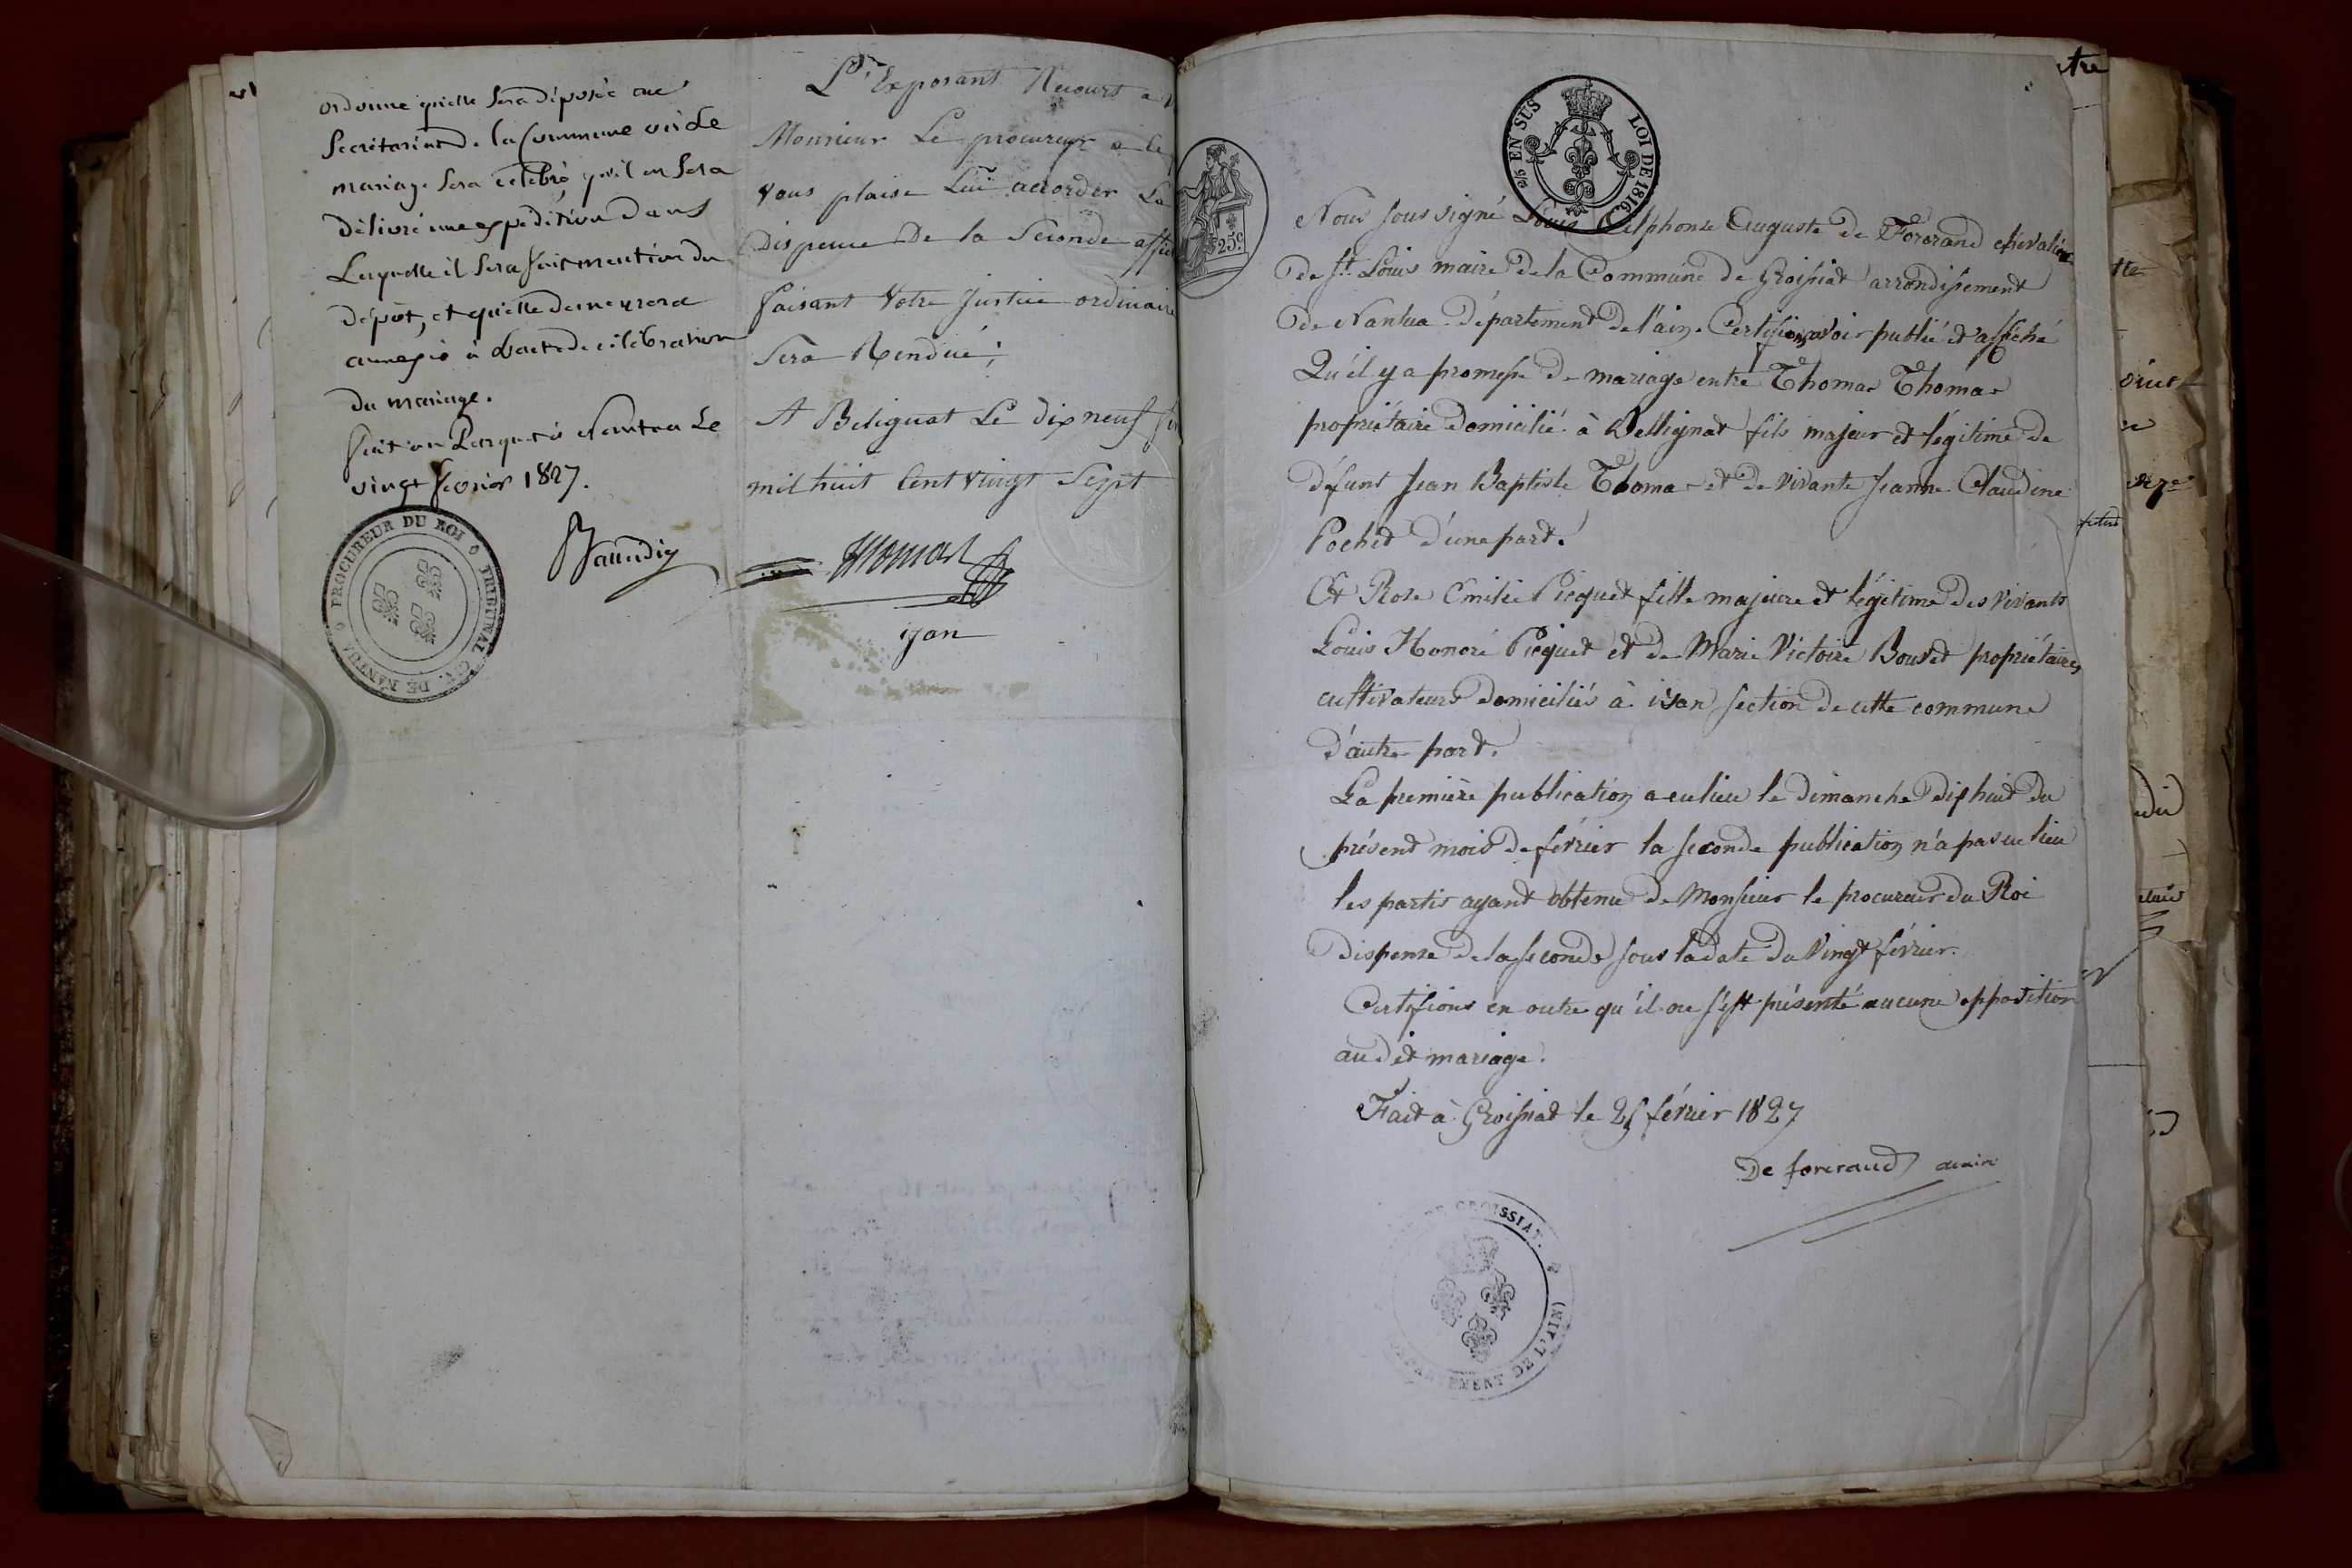 ordonne qu'elle sera déposée au
Secrétariat de la Commune où le
mariage sera célébré, qu'il en sera
délivré une expédition dans
Laquelle il sera fait mention du
dépôt, et qu'elle demeurera
annexée à l'acte de célébration
du mariage.
fait au Parquet à Nantua Le
vingt février 1827.
PROCUREUR DU ROI
TRIBUNAL CIV. DE NANTUA
L'Exposant Recourt a
Monsieur Le procureur a ce
vous plaise Lui accorder La
Dispence De la Seconde
faisant Votre Justice ordinaire
Sera Rendüe;
A Belignat Le dix neuf
mil huit Cent vingt Sept
Thomas
ijan
2/5 EN SUS
LOI DE 1816.
25c
Nous sous signé Louis Alphonse Auguste de Forcrand chevalier
de St. Louis maire de la Commune de Groissiat arrondissement
de Nantua département de l'ain. Certifions avoir publié et affiché
Qu'il y a promesse de mariage entre Thomas Thomas
propriétaire domicilié à Bellignat fils majeur et légitime de
défunt Jean Baptiste Thomas et de vivante Jeanne Claudine
Pochet d'une part.
Et Rose Emilie Picquet fille majeure et légitime des vivants
Louis Honoré Picquet et de Marie Victoire Bouvet propriétaires
cultivateurs domiciliés à ijan section de cette commune
d'autre part.
La première publication a eu lieu le dimanche dix huit du
présent mois de février la seconde publication n'a pas eu lieu
les partis ayant obtenu de Monsieur le procureur du Roi
dispense de la seconde sous la date du vingt février.
Certifions en outre qu'il ne s'est présenté aucune opposition
au dit mariage.
Fait à Groissiat le 25 février 1827
De forcrand maire
GROISSIAT.
DEPARTEMENT DE L'AIN